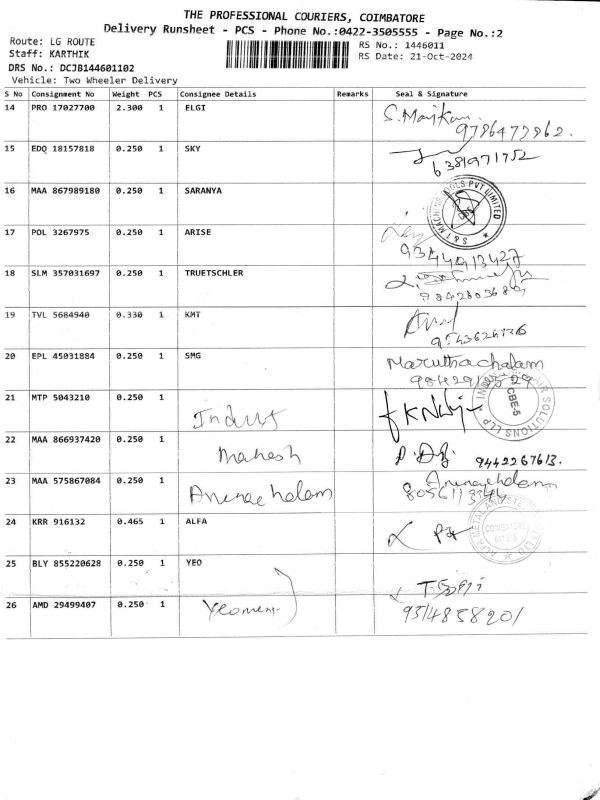 THE PROFESSIONAL COURIERS, COIMBATORE
Delivery Runsheet - PCS - Phone No.:0422-3505555 - Page No.:2
Route: LG ROUTE
Staff: KARTHIK
DRS No.: DCJB144601102
Vehicle: Two Wheeler Delivery
RS No.: 1446011
RS Date: 21-Oct-2024
S No Consignment No Weight PCS Consignee Details Remarks Seal & Signature
14 PRO 17027700 2.300 1 ELGI
15 EDQ 18157818 0.250 1 SKY
6381971752
16 MAA 867989180 0.250 1 SARANYA
S & T MACHINE TOOLS PVT LIMITED
17 POL 3267975 0.250 1 ARISE
9344913427
18 SLM 357031697 0.250 1 TRUETSCHLER
19 TVL 5684940 0.330 1 KMT
20 EPL 45031884 0.250 1 SMG
Maruthachalam
21 MTP 5043210 0.250 1 Indust
AIR SOLUTIONS
CBE-5
22 MAA 866937420 0.250 1 Mahesh
9442267613.
23 MAA 575867084 0.250 1 Arunachalam
Arunachalam
24 KRR 916132 0.465 1 ALFA
COIMBATORE
25 BLY 855220628 0.250 1 YEO
T. Gopi
26 AMD 29499407 0.250 1 Yeomen
9314858201